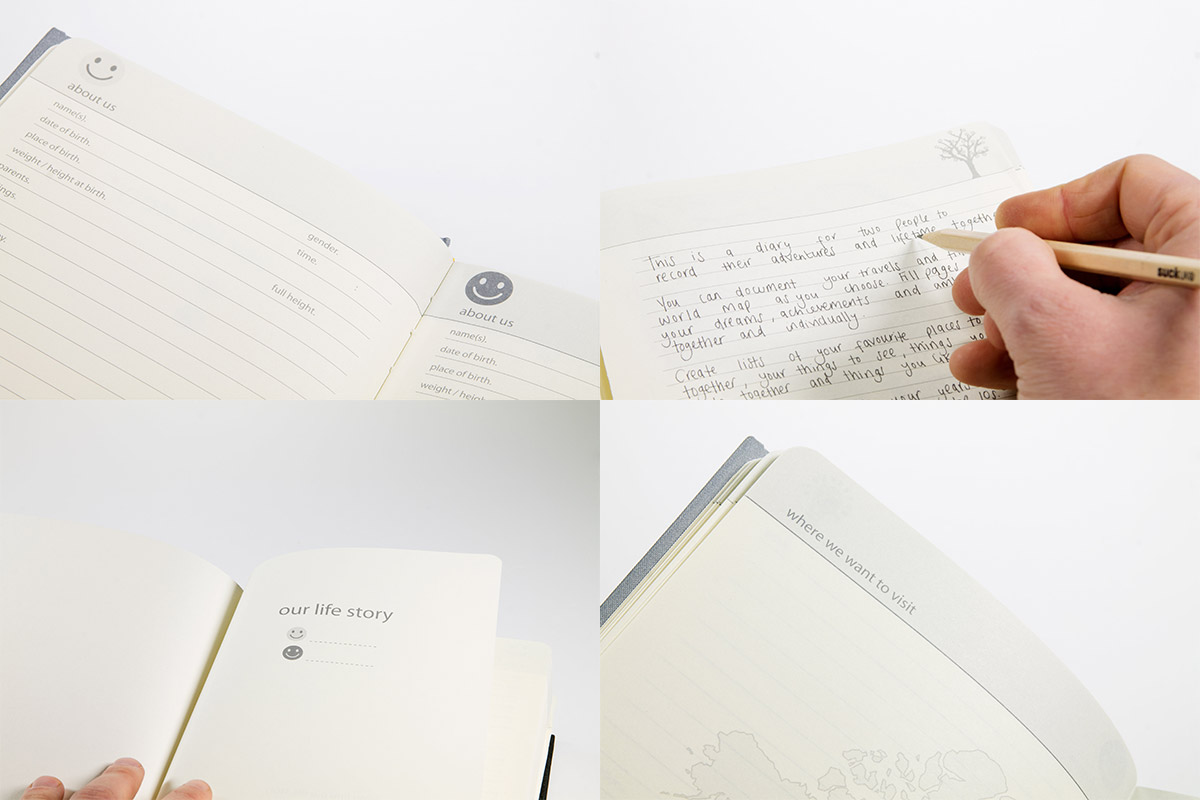 about us
name(s).
date of birth.
place of birth.
weight / height at birth.
gender.
time.
full height.
about us
name(s).
date of birth.
place of birth.
This is a diary for two people to
record their adventures and lifetime
You can document your travels and
world map as you choose. Fill pages
your dreams, achievements and
together and individually.
Create lists of your favourite places to
together, your things to see, things
together and things you
your years
our life story
where we want to visit